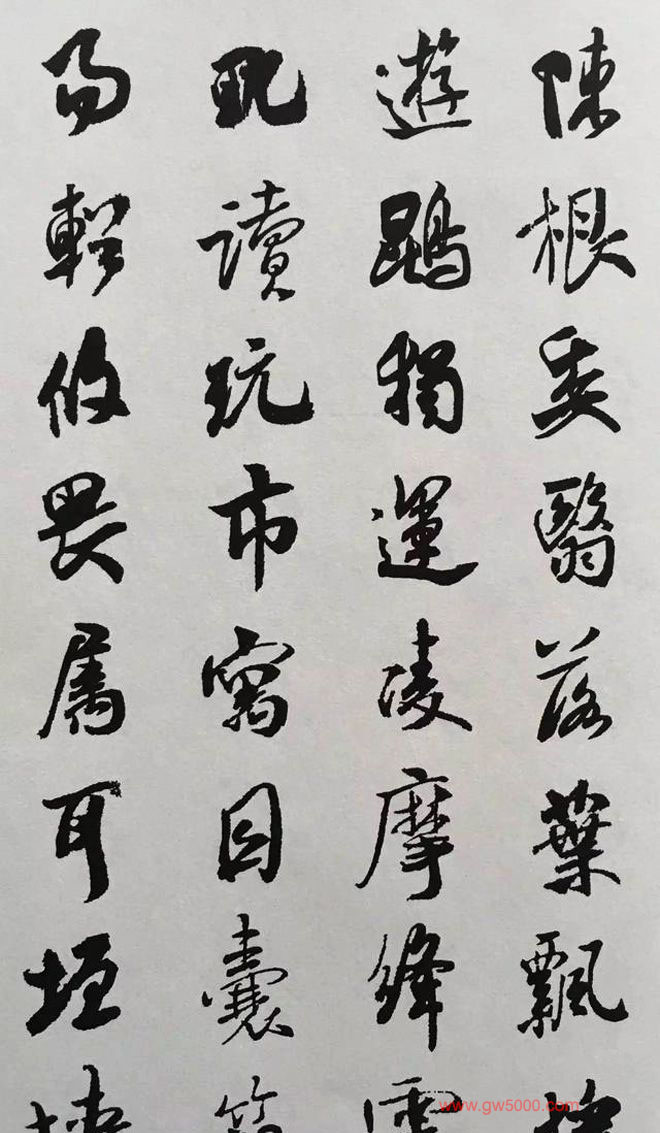 陳根委翳落葉飄
遊鵾獨運凌摩絳
耽讀玩市寓目囊
易輶攸畏属耳垣
www.gw5000.com